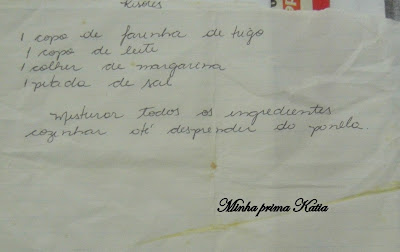 Risoles
1 copo de farinha de trigo
1 copo de leite
1 colher de margarina
1 pitada de sal
Misturar todos os ingredientes
cozinhar até desprender da panela.
Minha prima Katia